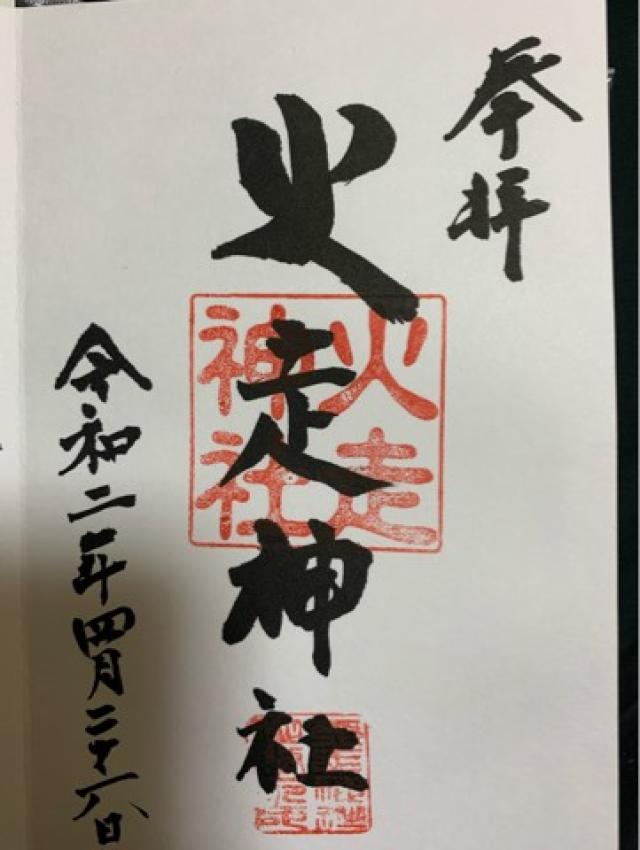 奉拝
火走神社
火走
神社
令和二年四月二十八日